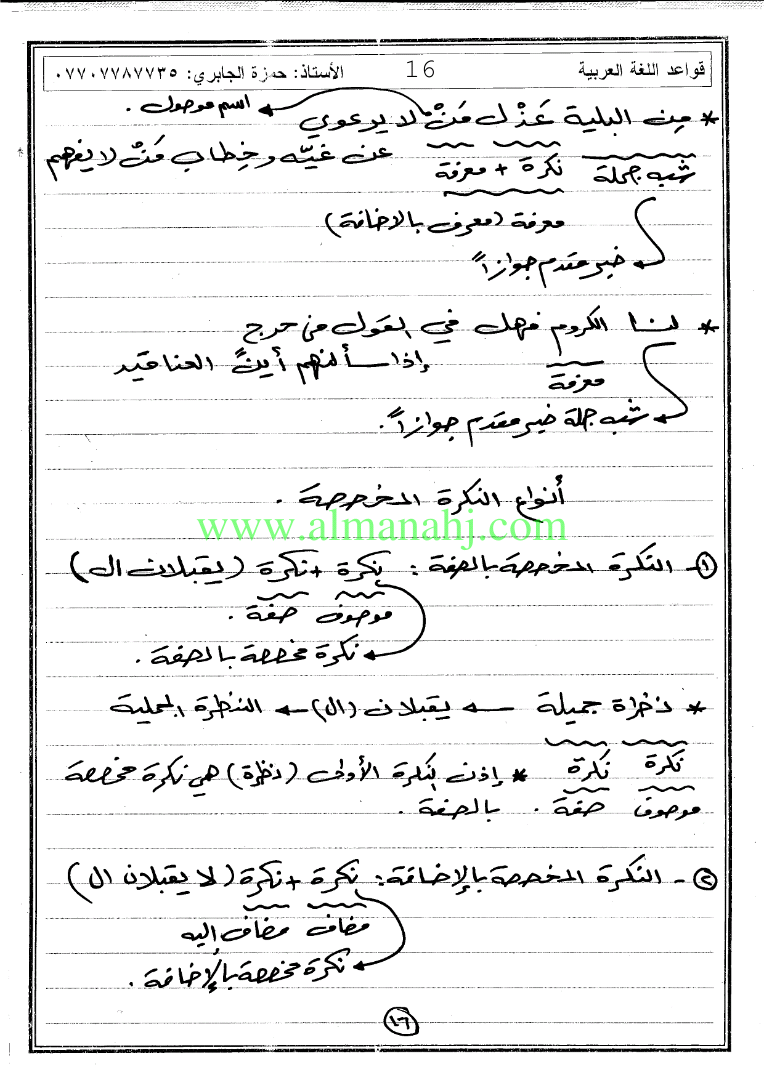 قواعد اللغة العربية 16 الأستاذ: حمزة الجابري: ٠٧٧٠٧٧٨٧٧٣٥
* مِن البلية عَذْل مَنْ لا يرعوي ← اسم موصول .
عن غيّه وخِطاب مَنْ لا يفهم
شبه جملة نكرة + معرفة
معرفة (معرف بالاضافة)
خبر مقدم جوازاً
* لنا الكروم فهل في القول من حرج
إذا سألنهم أينَ العناقيد
معرفة
شبه جملة خبر مقدم جوازاً.
أنواع النكرة المخصصة .
www.almanahj.com
١- النكرة المخصصة بالصفة : نكرة + نكرة (يقبلان ال)
موصوف صفة .
نكرة مخصصة بالصفة .
* نظراة جميلة ← يقبلان (ال) ← النظرة الجملية
نكرة نكرة * إذن النكرة الأولى (نظرة) هي نكرة مخصصة
موصوف صفة . بالصفة .
٢- النكرة المخصصة بالإضافة: نكرة + نكرة (لا يقبلان ال)
مضاف مضاف إليه
نكرة مخصصة بالإضافة .
١٦